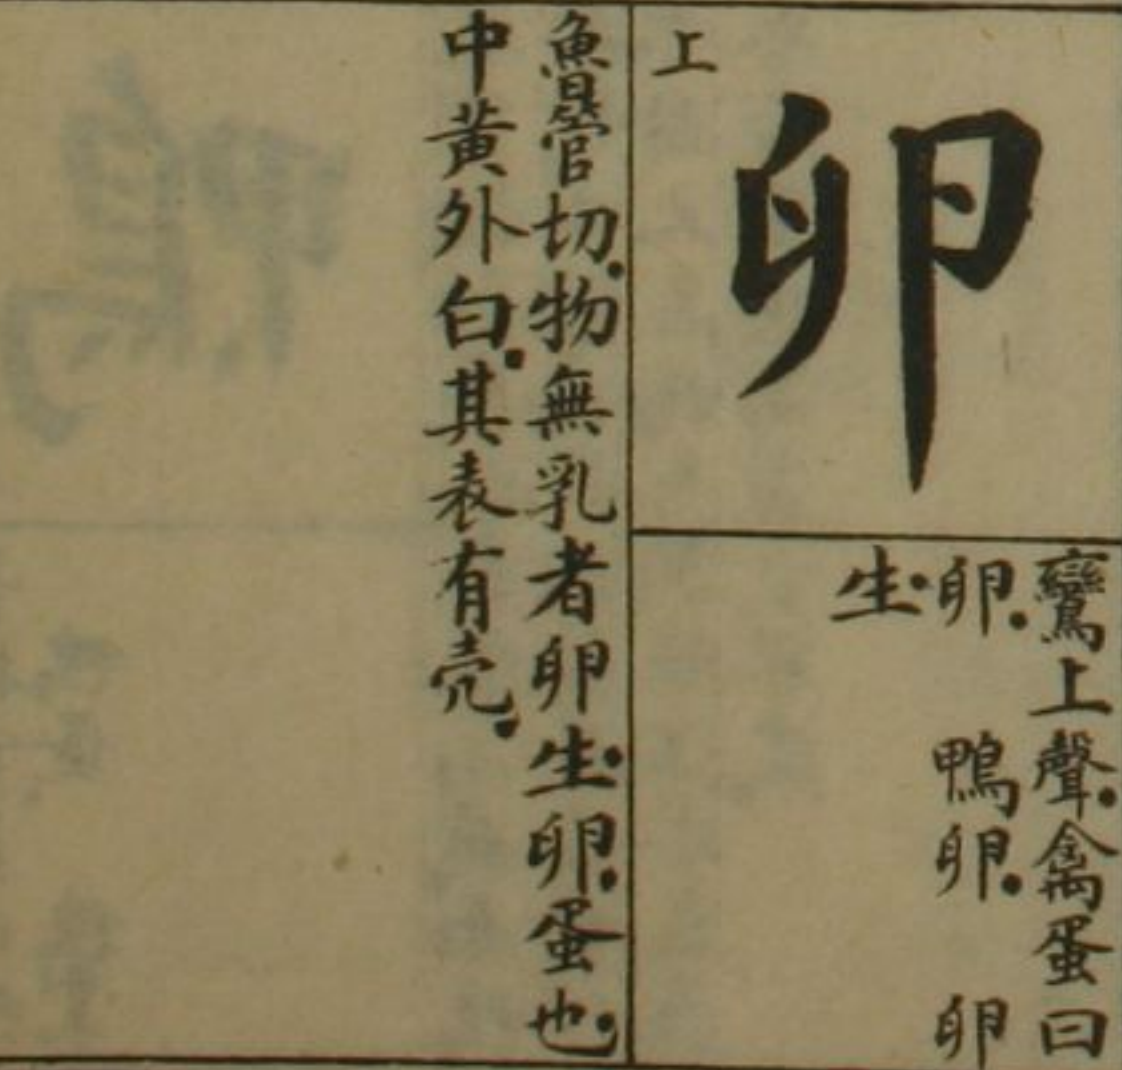 上
卵
鸞上聲.禽蛋曰
卵. 鴨卵. 卵
生.
魯管切.物無乳者卵生.卵.蛋也.
中黃外白.其表有壳.